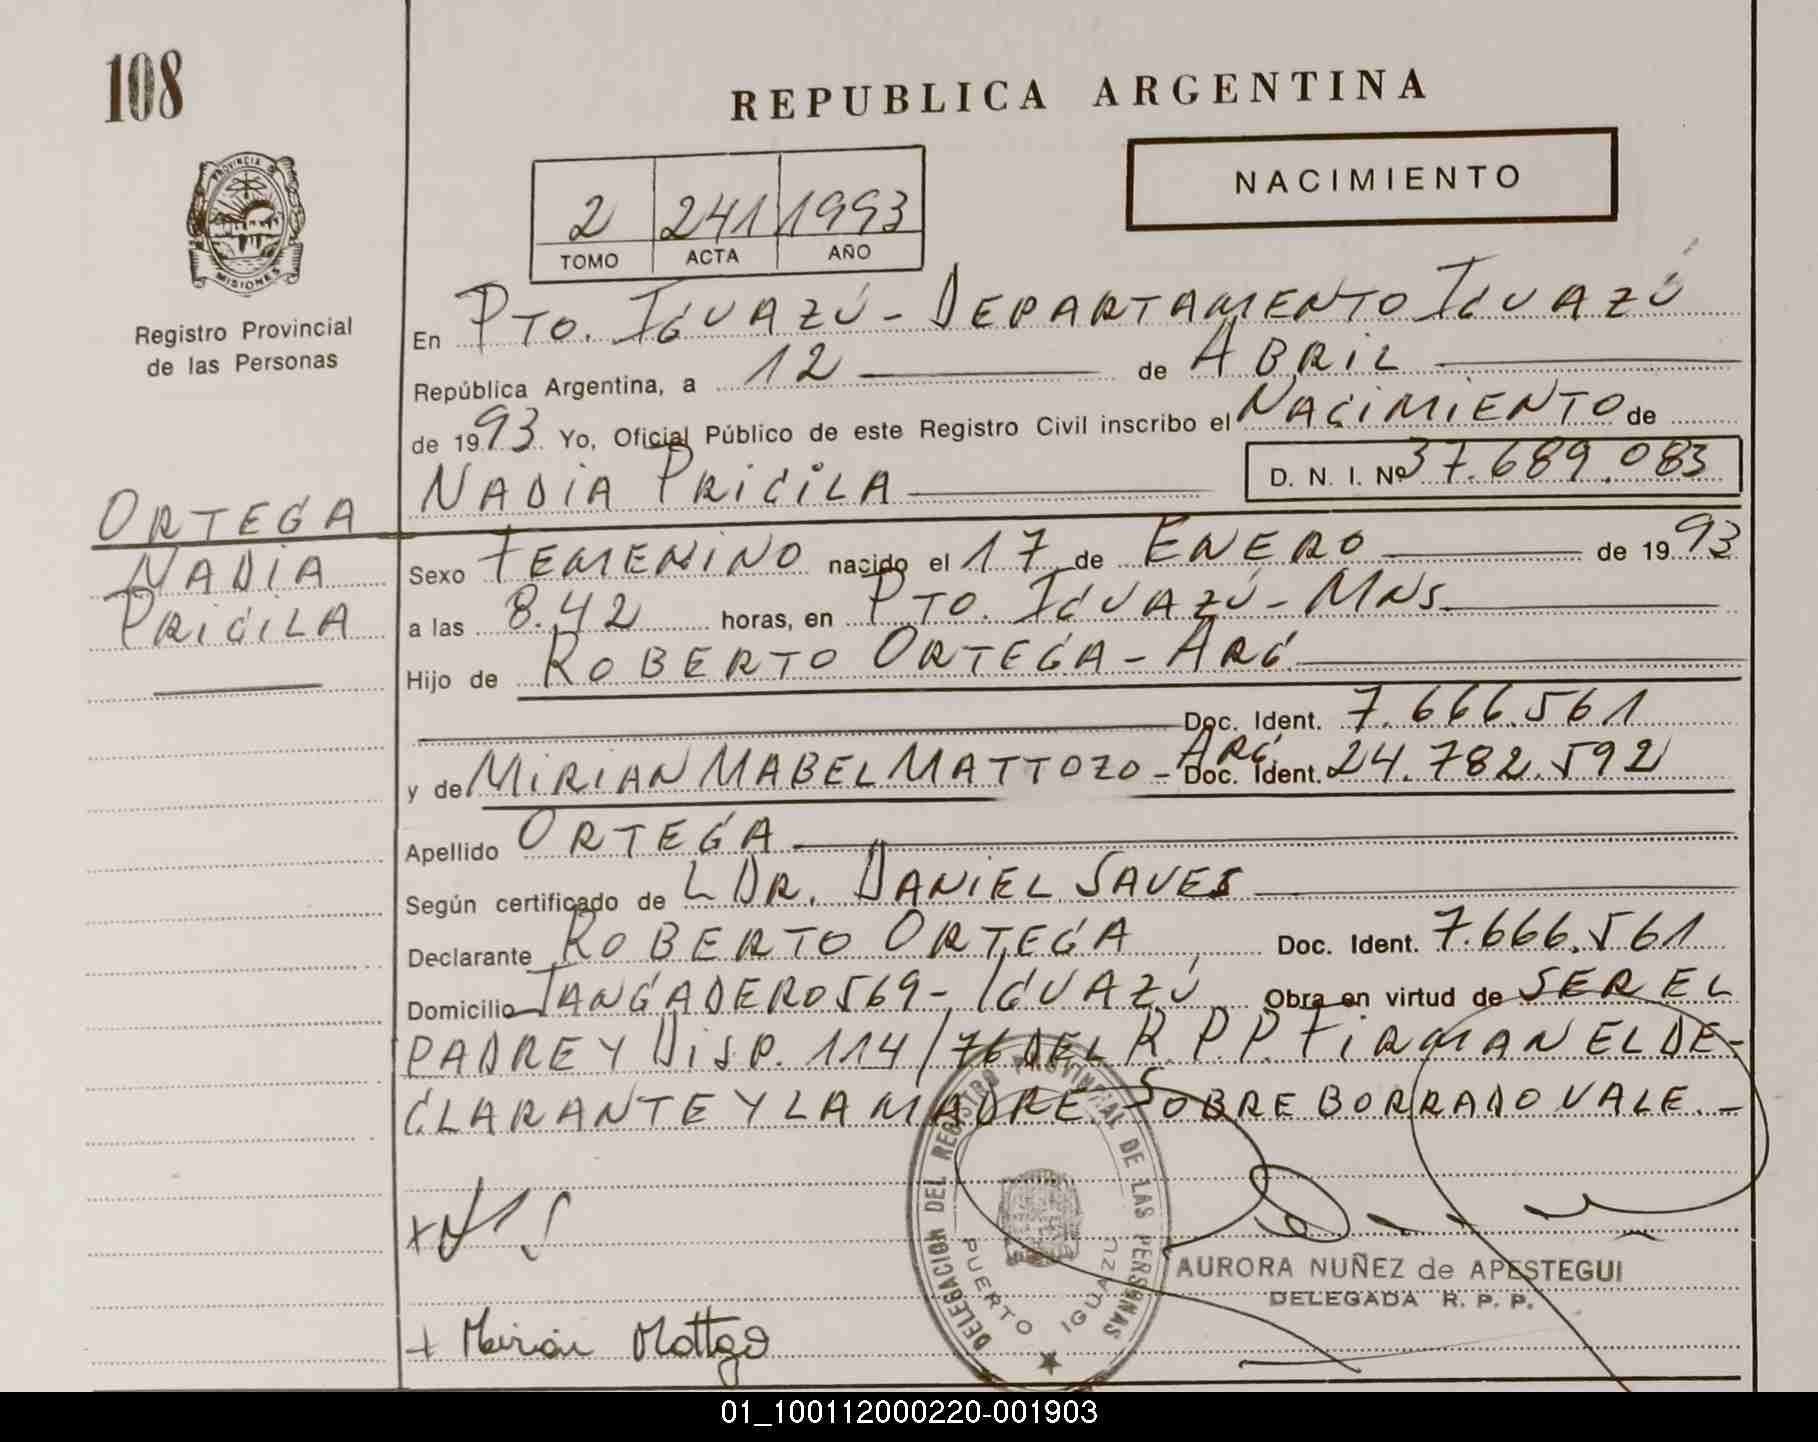 108
REPUBLICA ARGENTINA
NACIMIENTO
2 241 1993
TOMO ACTA AÑO
PROVINCIA DE
MISIONES
Registro Provincial
de las Personas
En PTO. IGUAZÚ - DEPARTAMENTO IGUAZÚ
República Argentina, a 12 de ABRIL
de 1993 Yo, Oficial Público de este Registro Civil inscribo el NACIMIENTO de
NADIA PRICILA D. N. I. Nº 37.689.083
ORTEGA
NADIA
PRICILA
Sexo FEMENINO nacido el 17 de ENERO de 1993
a las 8.42 horas, en PTO. IGUAZÚ - MNS
Hijo de ROBERTO ORTEGA - ARG
Doc. Ident. 7.666.561
y de MIRIAN MABEL MATTOZO - ARG. Doc. Ident. 24.782.592
Apellido ORTEGA
Según certificado de L DR. DANIEL SAVES
Declarante ROBERTO ORTEGA Doc. Ident. 7.666.561
Domicilio TANGADERO 569 - IGUAZÚ Obra en virtud de SER EL
PADRE Y DISP. 114/76 DEL R.P.P. FIRMAN EL DE-
CLARANTE Y LA MADRE. SOBRE BORRADO VALE. -
DELEGACION DEL REGISTRO PROVINCIAL DE LAS PERSONAS
PUERTO IGUAZU
AURORA NUÑEZ de APESTEGUI
DELEGADA R. P. P.
+ Mirian Mattozo
01_100112000220-001903